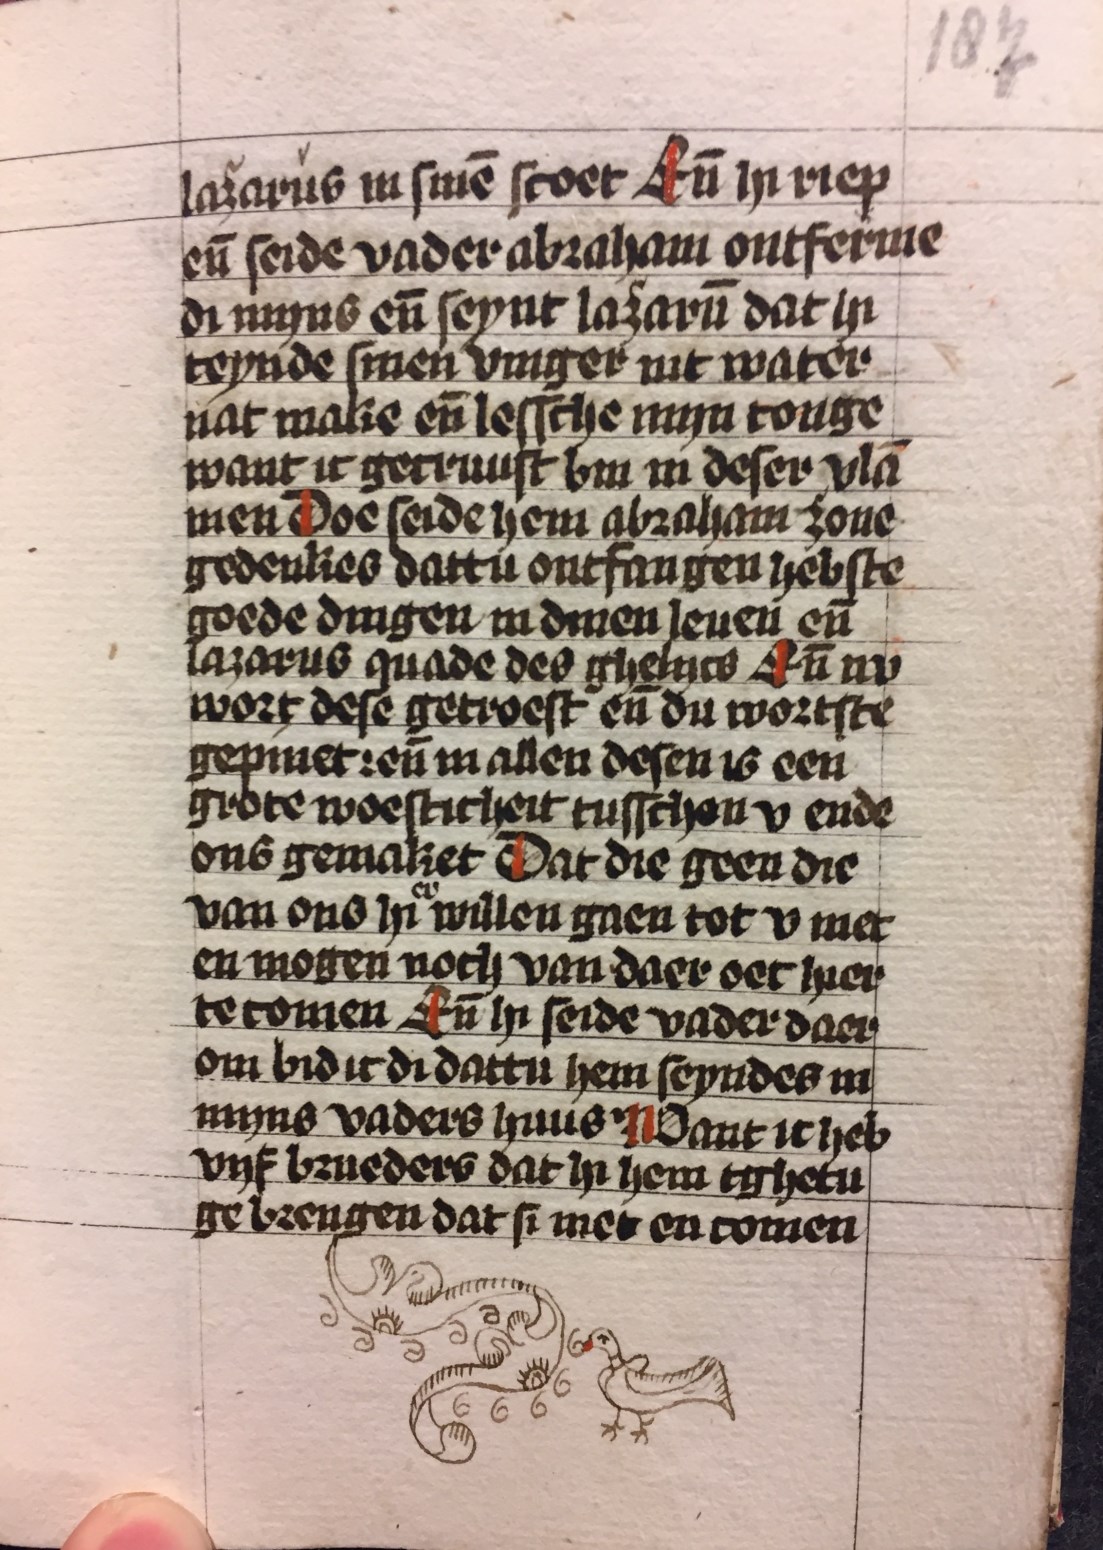 187
lazarus in sinē scoet Eñ hi riep
eñ seide vader abraham ontferme
di mijns eñ seynt lazarū dat hi
teynde sinen vinger int water
nat make eñ lessche mijn tonge
want ic getruust bin in deser vlā
men Doe seide hem abraham zone
gedenkes dattu ontfangen hebste
goede dingen in dinen leuen eñ
lazarus quade des ghelijcs Eñ nv
wort dese getroest eñ du wortste
gepinet : eñ in allen desen is een
grote woesticheit tusschen v ende
ons gemaket Dat die geen die
van ons hier willen gaen tot v niet
en mogen noch van daer oec hier
te comen Eñ hi seide vader daer
om bid ic di dattu hem seyndes in
mijns vaders huus Want ic heb
vijf brueders dat hi hem tghetu
ge brengen dat si niet en comen